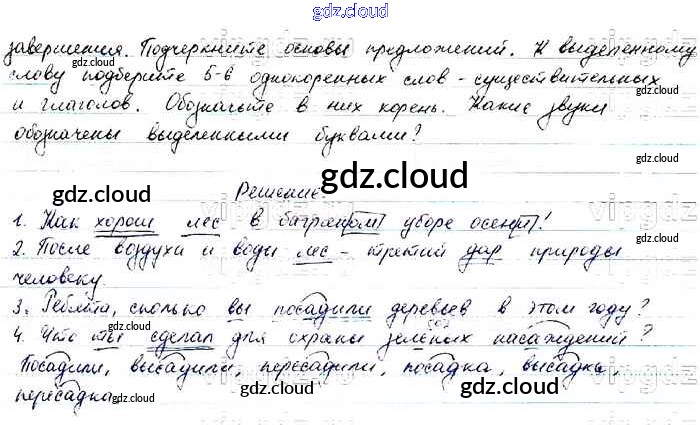 gdz.cloud
завершения. Подчеркните основы предложений. К выделенному
слову подберите 5-6 однокоренных слов - существительных
и глаголов. Обозначьте в них корень. Какие звуки
обозначены выделенными буквами?
Решение.
1. Как хорош лес в багряном уборе осени!
2. После воздуха и воды лес - третий дар природы
человеку.
3. Ребята, сколько вы посадили деревьев в этом году?
4. Что ты сделал для охраны зелёных насаждений?
Посадили, высадили, пересадили, посадка, высадка,
пересадка.